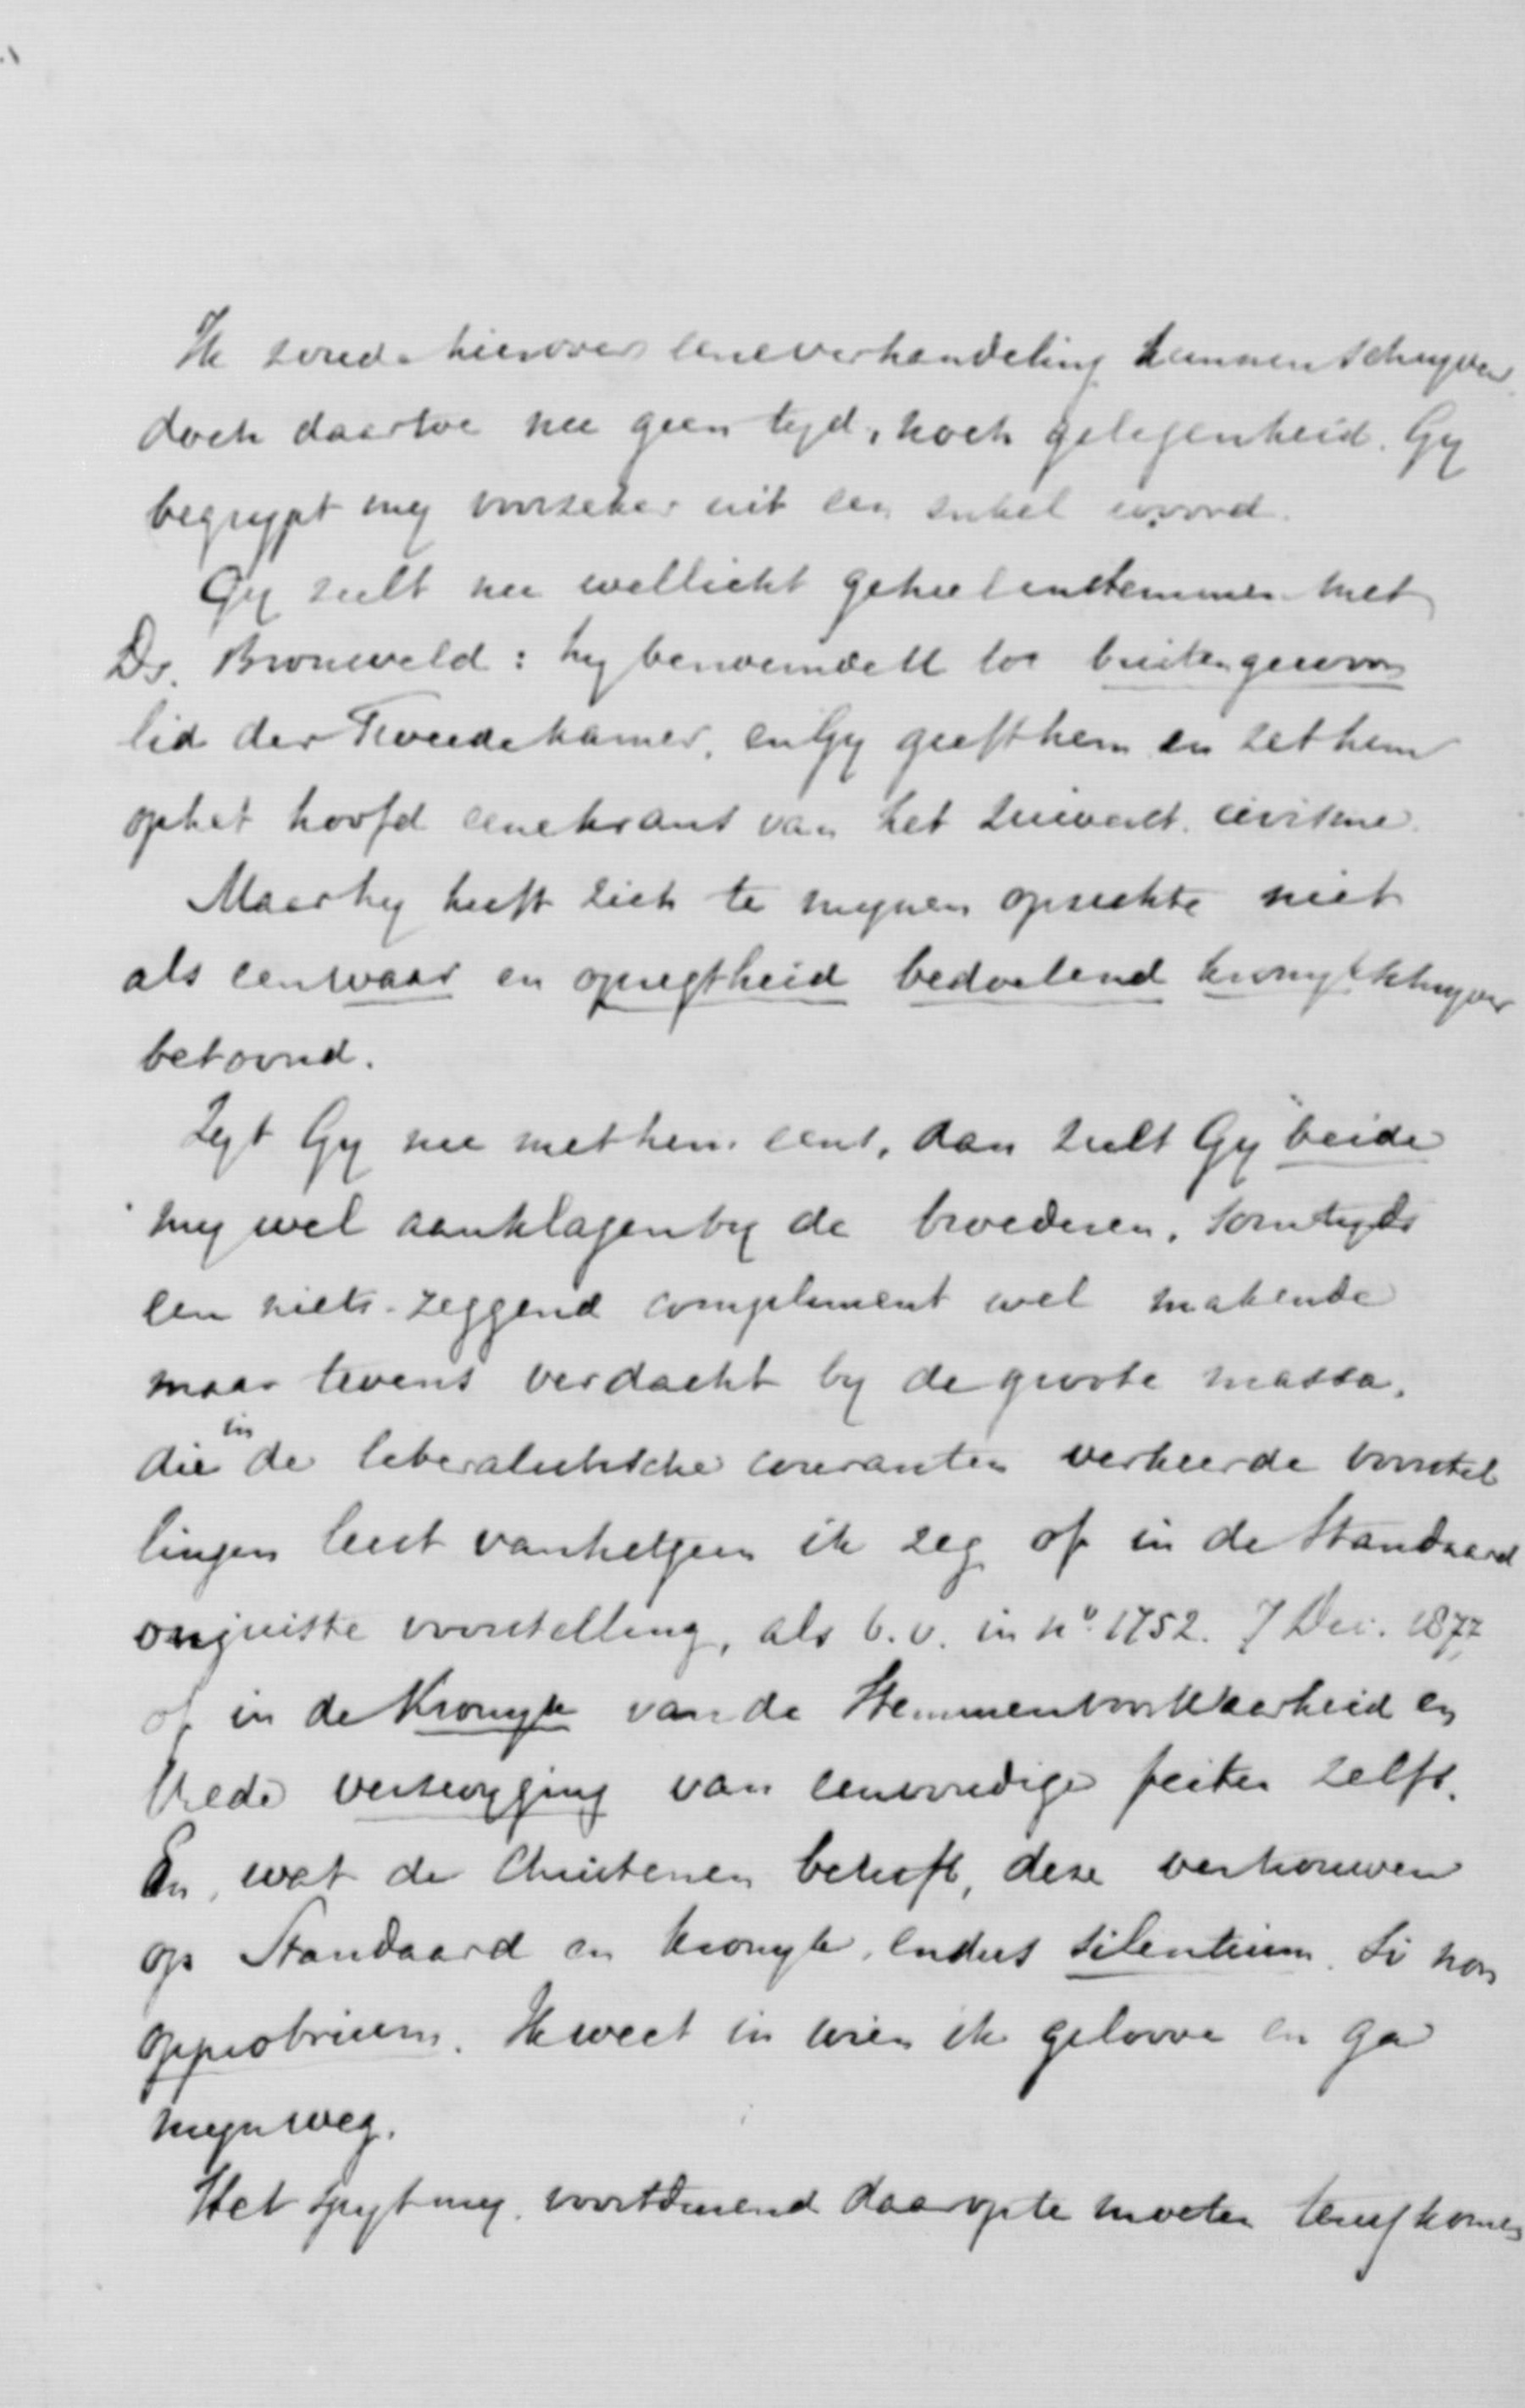 Ik zoude hierover eene verhandeling kunnen schryven
doch daartoe nu geen tyd, noch gelegenheid. Gy
begrypt my voorzeker uit een enkel woord.
Gy zult nu wellicht geheel instemmen met
Dr. Bronsveld: hy benoemde U tot buitengewoon
lid der Tweede kamer, en Gy geeft hem en zet hem
op het hoofd eene krans van het zuiverst civisme.
Maar hy heeft zich te mynen opzichte niet
als een waar en opregtheid bedoelend kronykschryver
betoond.
Zyt Gy nu met hem eens, dan zult Gy beide
my wel aanklagen by de broederen, somtyds
een niets-zeggend compliment wel makende
maar tevens verdacht by de groote massa,
die in de liberalistische couranten verkeerde voorstel
lingen leest van hetgeen ik zeg of in de Standaard
onjuiste voorstelling, als b.v. in no. 1752. 7 Dec. 1877
of in de Kronyk van de Stemmen voor Waarheid en
Vrede verzwyging van eenvoudige feiten zelfs.
En, wat de Christenen betreft, deze vertrouwen
op Standaard en kronyk, enders silentium. Si non
opprobrium. Ik weet in wien ik geloove en ga
myn weg.
Het spyt my, voortdurend daarop te moeten terugkomen